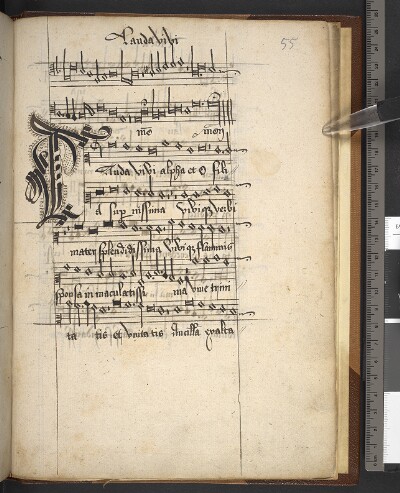 Lauda vivi
55
mo mon
Lauda vivi alpha et O fili
a sup nissima vivi verbi
mater splendidissima vivi flaminis
sponsa in maculatissi ma vive trini
ta tis et unitatis Ancilla exalta